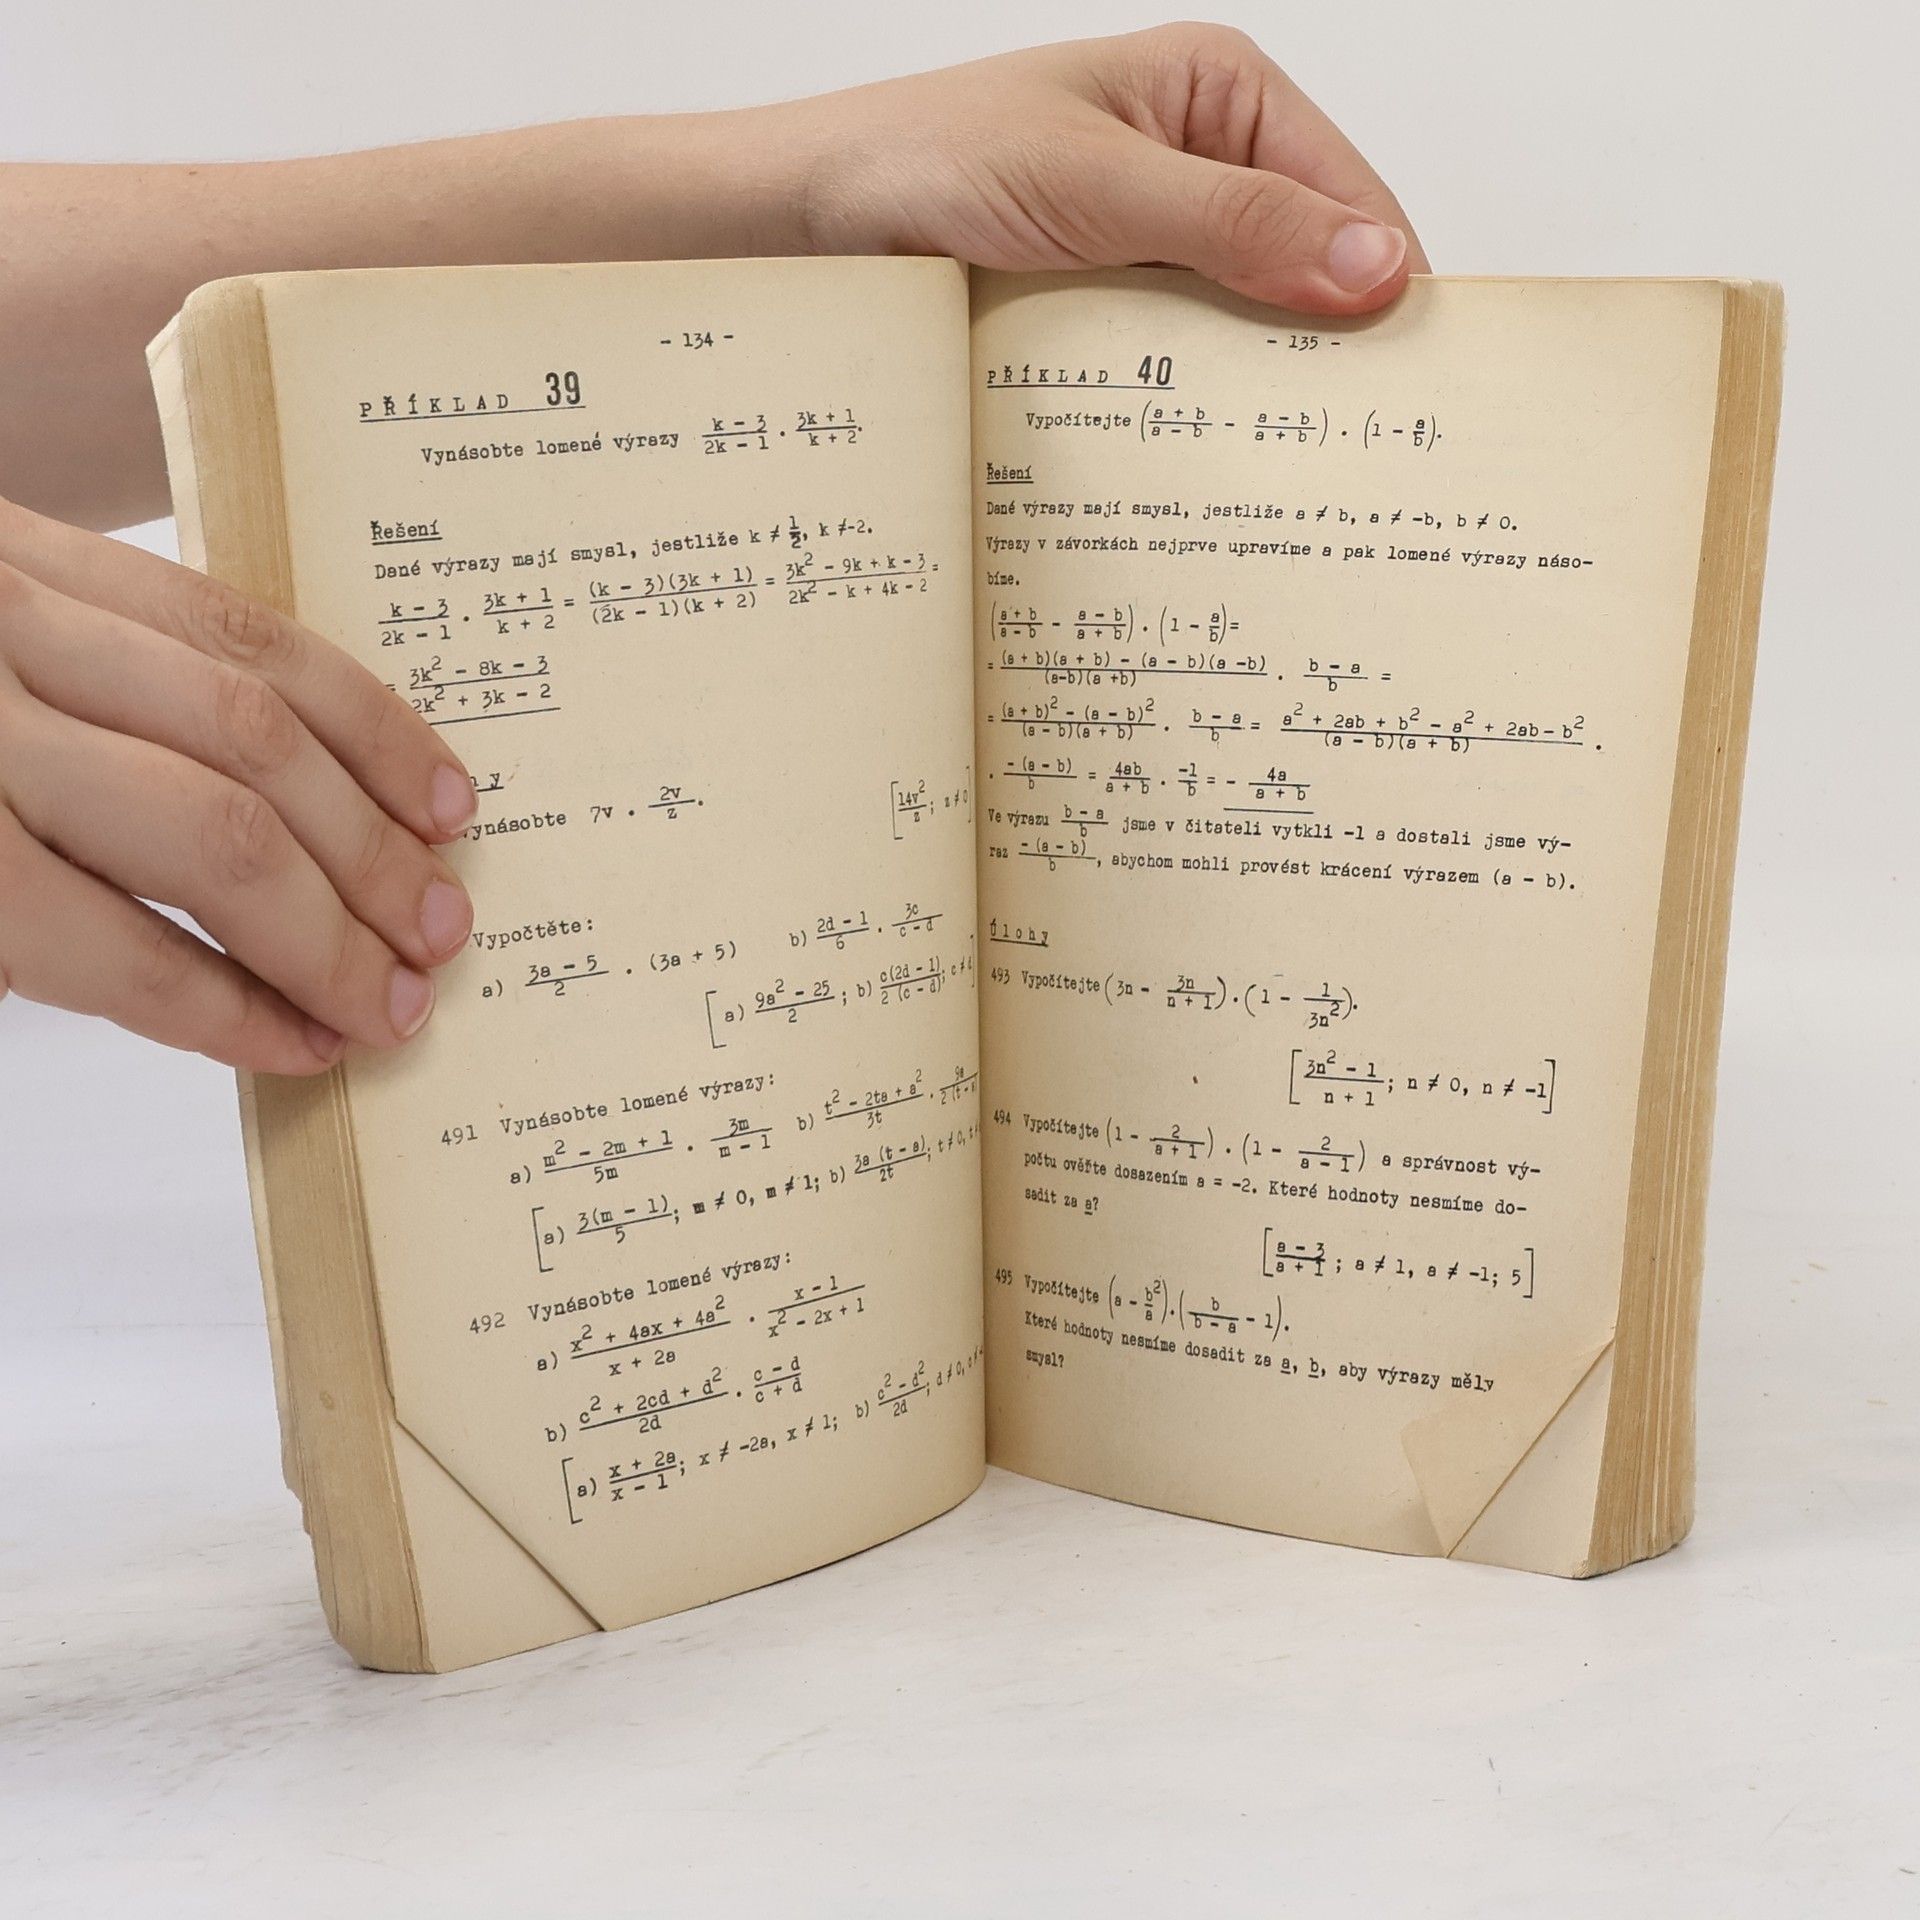 - 134 -
PŘÍKLAD 39
Vynásobte lomené výrazy (k - 3)/(2k - 1) . (3k + 1)/(k + 2).
Řešení
Dané výrazy mají smysl, jestliže k ≠ 1/2, k ≠ -2.
(k - 3)/(2k - 1) . (3k + 1)/(k + 2) = ((k - 3)(3k + 1))/((2k - 1)(k + 2)) = (3k² - 9k + k - 3)/(2k² - k + 4k - 2) =
= (3k² - 8k - 3)/(2k² + 3k - 2)
7v . 2v/z.
[14v²/z; z ≠ 0]
Vypočtěte:
a) (3a - 5)/2 . (3a + 5) b) (2d - 1)/6 . 3c/(c - d)
[a) (9a² - 25)/2; b) c(2d - 1)/2 (c - d); c ≠
491 Vynásobte lomené výrazy:
a) (m² - 2m + 1)/5m . 3m/(m - 1) b) (t² - 2ta + a²)/3t . 9a/2 (t -
[a) 3(m - 1)/5; m ≠ 0, m ≠ 1; b) 3a (t - a)/2t; t ≠ 0,
492 Vynásobte lomené výrazy:
a) (x² + 4ax + 4a²)/(x + 2a) . (x - 1)/(x² - 2x + 1)
b) (c² + 2cd + d²)/2d . (c - d)/(c + d)
[a) (x + 2a)/(x - 1); x ≠ -2a, x ≠ 1; b) (c² - d²)/2d; d ≠ 0,
- 135 -
PŘÍKLAD 40
Vypočítejte ((a + b)/(a - b) - (a - b)/(a + b)) . (1 - a/b).
Řešení
Dané výrazy mají smysl, jestliže a ≠ b, a ≠ -b, b ≠ 0.
Výrazy v závorkách nejprve upravíme a pak lomené výrazy náso-
bíme.
((a + b)/(a - b) - (a - b)/(a + b)) . (1 - a/b) =
= ((a + b)(a + b) - (a - b)(a -b))/((a-b)(a +b)) . (b - a)/b =
= ((a + b)² - (a - b)²)/((a - b)(a + b)) . (b - a)/b = (a² + 2ab + b² - a² + 2ab - b²)/((a - b)(a + b)) .
. -(a - b)/b = 4ab/(a + b) . -1/b = - 4a/(a + b)
Ve výrazu (b - a)/b jsme v čitateli vytkli -1 a dostali jsme vý-
raz -(a - b)/b, abychom mohli provést krácení výrazem (a - b).
Úlohy
493 Vypočítejte (3n - 3n/(n + 1)) . (1 - 1/3n²).
[(3n² - 1)/(n + 1); n ≠ 0, n ≠ -1]
494 Vypočítejte (1 - 2/(a + 1)) . (1 - 2/(a - 1)) a správnost vý-
počtu ověřte dosazením a = -2. Které hodnoty nesmíme do-
sadit za a?
[(a - 3)/(a + 1); a ≠ 1, a ≠ -1; 5]
495 Vypočítejte (a - b²/a) . (b/(b - a) - 1).
Které hodnoty nesmíme dosadit za a, b, aby výrazy měly
smysl?